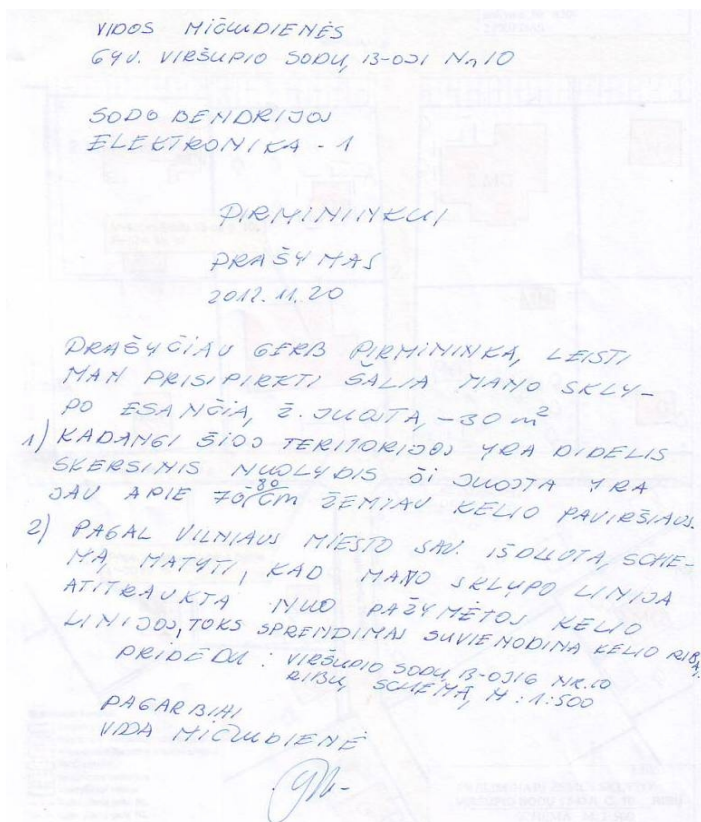 VIDOS MIČIUDIENĖS
GYV. VIRŠUPIO SODŲ 13-OJI Nr 10
SODO BENDRIJOS
ELEKTRONIKA - 1
PIRMININKUI
PRAŠYMAS
2012.11.20
PRAŠYČIAU GERB PIRMININKĄ, LEISTI
MAN PRISIPIRKTI ŠALIA MANO SKLY-
PO ESANČIĄ, Ž. JUOSTĄ, ~30 m²
1) KADANGI ŠIOJ TERITORIJOJ YRA DIDELIS
SKERSINIS NUOLYDIS ŠI JUOSTA YRA
JAU APIE 70-80 cm ŽEMIAU KELIO PAVIRŠIAUS.
2) PAGAL VILNIAUS MIESTO SAV. IŠDUOTĄ, SCHE-
MĄ, MATYTI, KAD MANO SKLYPO LINIJA
ATITRAUKTA NUO PAŽYMĖTOS KELIO
LINIJOS, TOKS SPRENDIMAS SUVIENODINA KELIO RIBĄ.
PRIDEDU: VIRŠUPIO SODŲ 13-OJI6 NR.10
RIBŲ SCHEMĄ, M: 1:500
PAGARBIAI
VIDA MIČIUDIENĖ